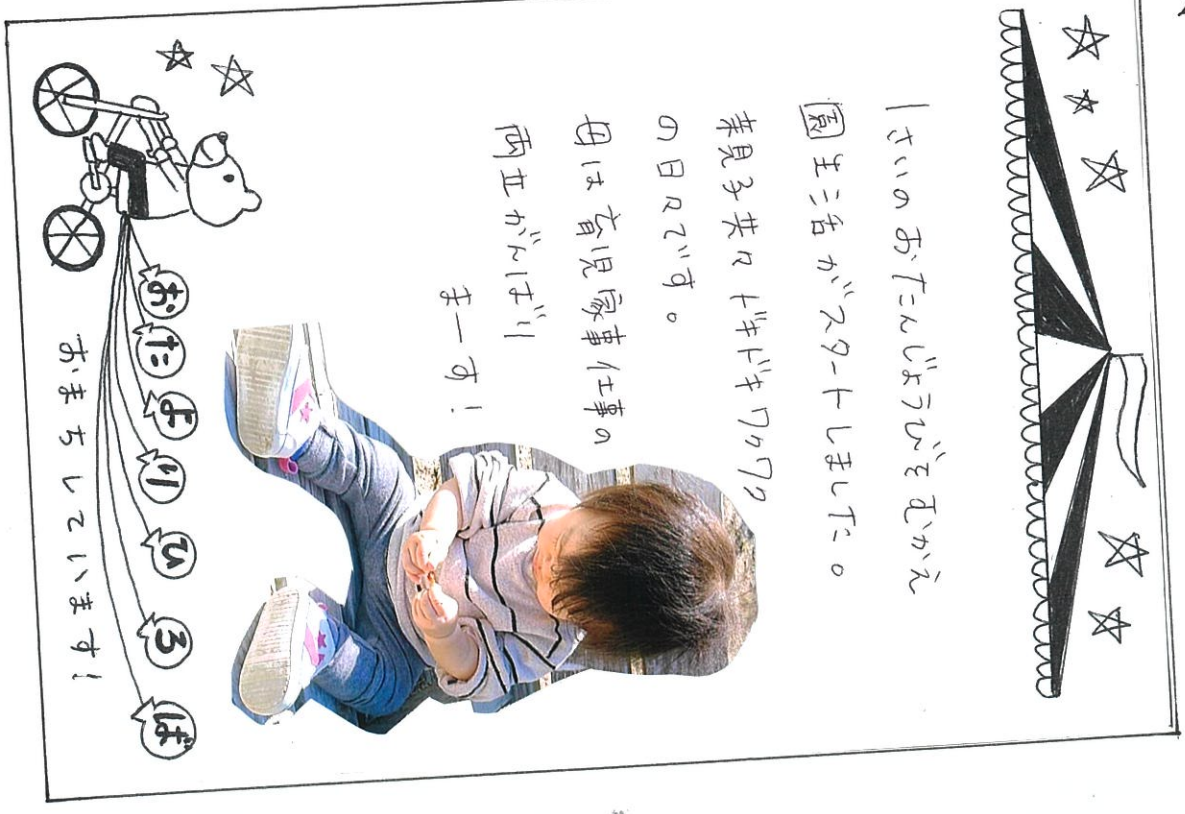 1さいのおたんじょうびをむかえ
園生活がスタートしました。
親子共々ドキドキワクワク
の日々です。
母は育児家事仕事の
両立がんばり
まーす!
おたよりひろば
おまちしています!